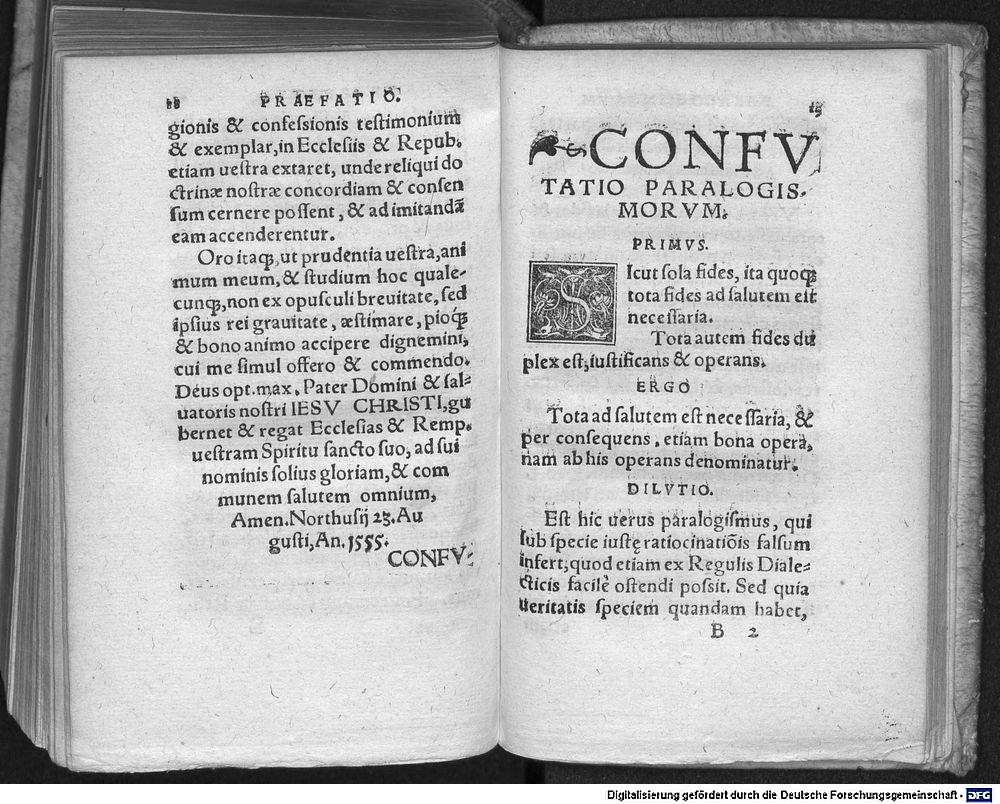 PRÆFATIO.
gionis & confessionis testimonium
& exemplar, in Ecclesiis & Repub.
etiam uestra extaret, unde reliqui do
ctrinæ nostræ concordiam & consen
sum cernere possent, & ad imitandã
eam accenderentur.
Oro itaq;, ut prudentia uestra, ani
mum meum, & studium hoc quale-
cunq;, non ex opusculi breuitate, sed
ipsius rei grauitate, æstimare, pioq;
& bono animo accipere dignemini,
cui me simul offero & commendo.
Deus opt. max. Pater Domini & sal-
uatoris nostri IESV CHRISTI, gu
bernet & regat Ecclesias & Remp.
uestram Spiritu sancto suo, ad sui
nominis solius gloriam, & com
munem salutem omnium,
Amen. Northusij 23. Au
gusti, An. 1555.
CONFV-
CONFV
TATIO PARALOGIS-
MORVM.
PRIMVS.
SIcut sola fides, ita quoq;
tota fides ad salutem est
necessaria.
Tota autem fides du
plex est, iustificans & operans.
ERGO
Tota ad salutem est necessaria, &
per consequens, etiam bona opera,
nam ab his operans denominatur.
DILVTIO.
Est hic uerus paralogismus, qui
sub specie iustę ratiocinatiõis falsum
infert, quod etiam ex Regulis Diale-
cticis facilè ostendi possit. Sed quia
ueritatis speciem quandam habet,
B 2
Digitalisierung gefördert durch die Deutsche Forschungsgemeinschaft - DFG